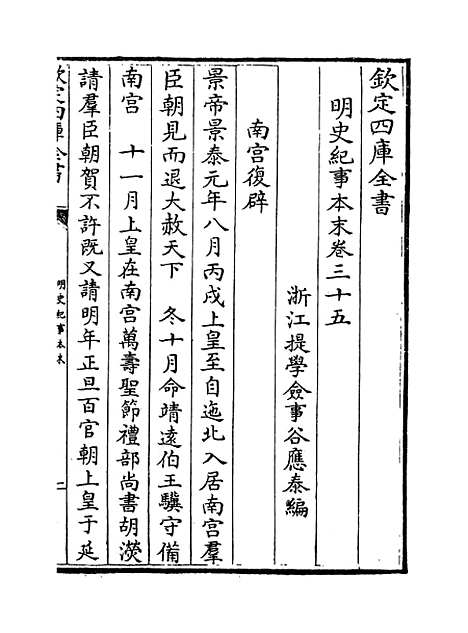 欽定四庫全書
明史紀事本末卷三十五
浙江提學僉事谷應泰編
南宫復辟
景帝景泰元年八月丙戌上皇至自迤北入居南宫羣
臣朝見而退大赦天下　冬十月命靖逺伯王驥守備
南宫　十一月上皇在南宫萬壽聖節禮部尚書胡濙
請羣臣朝賀不許既又請明年正旦百官朝上皇于延
欽定四庫全書
明史紀事本末